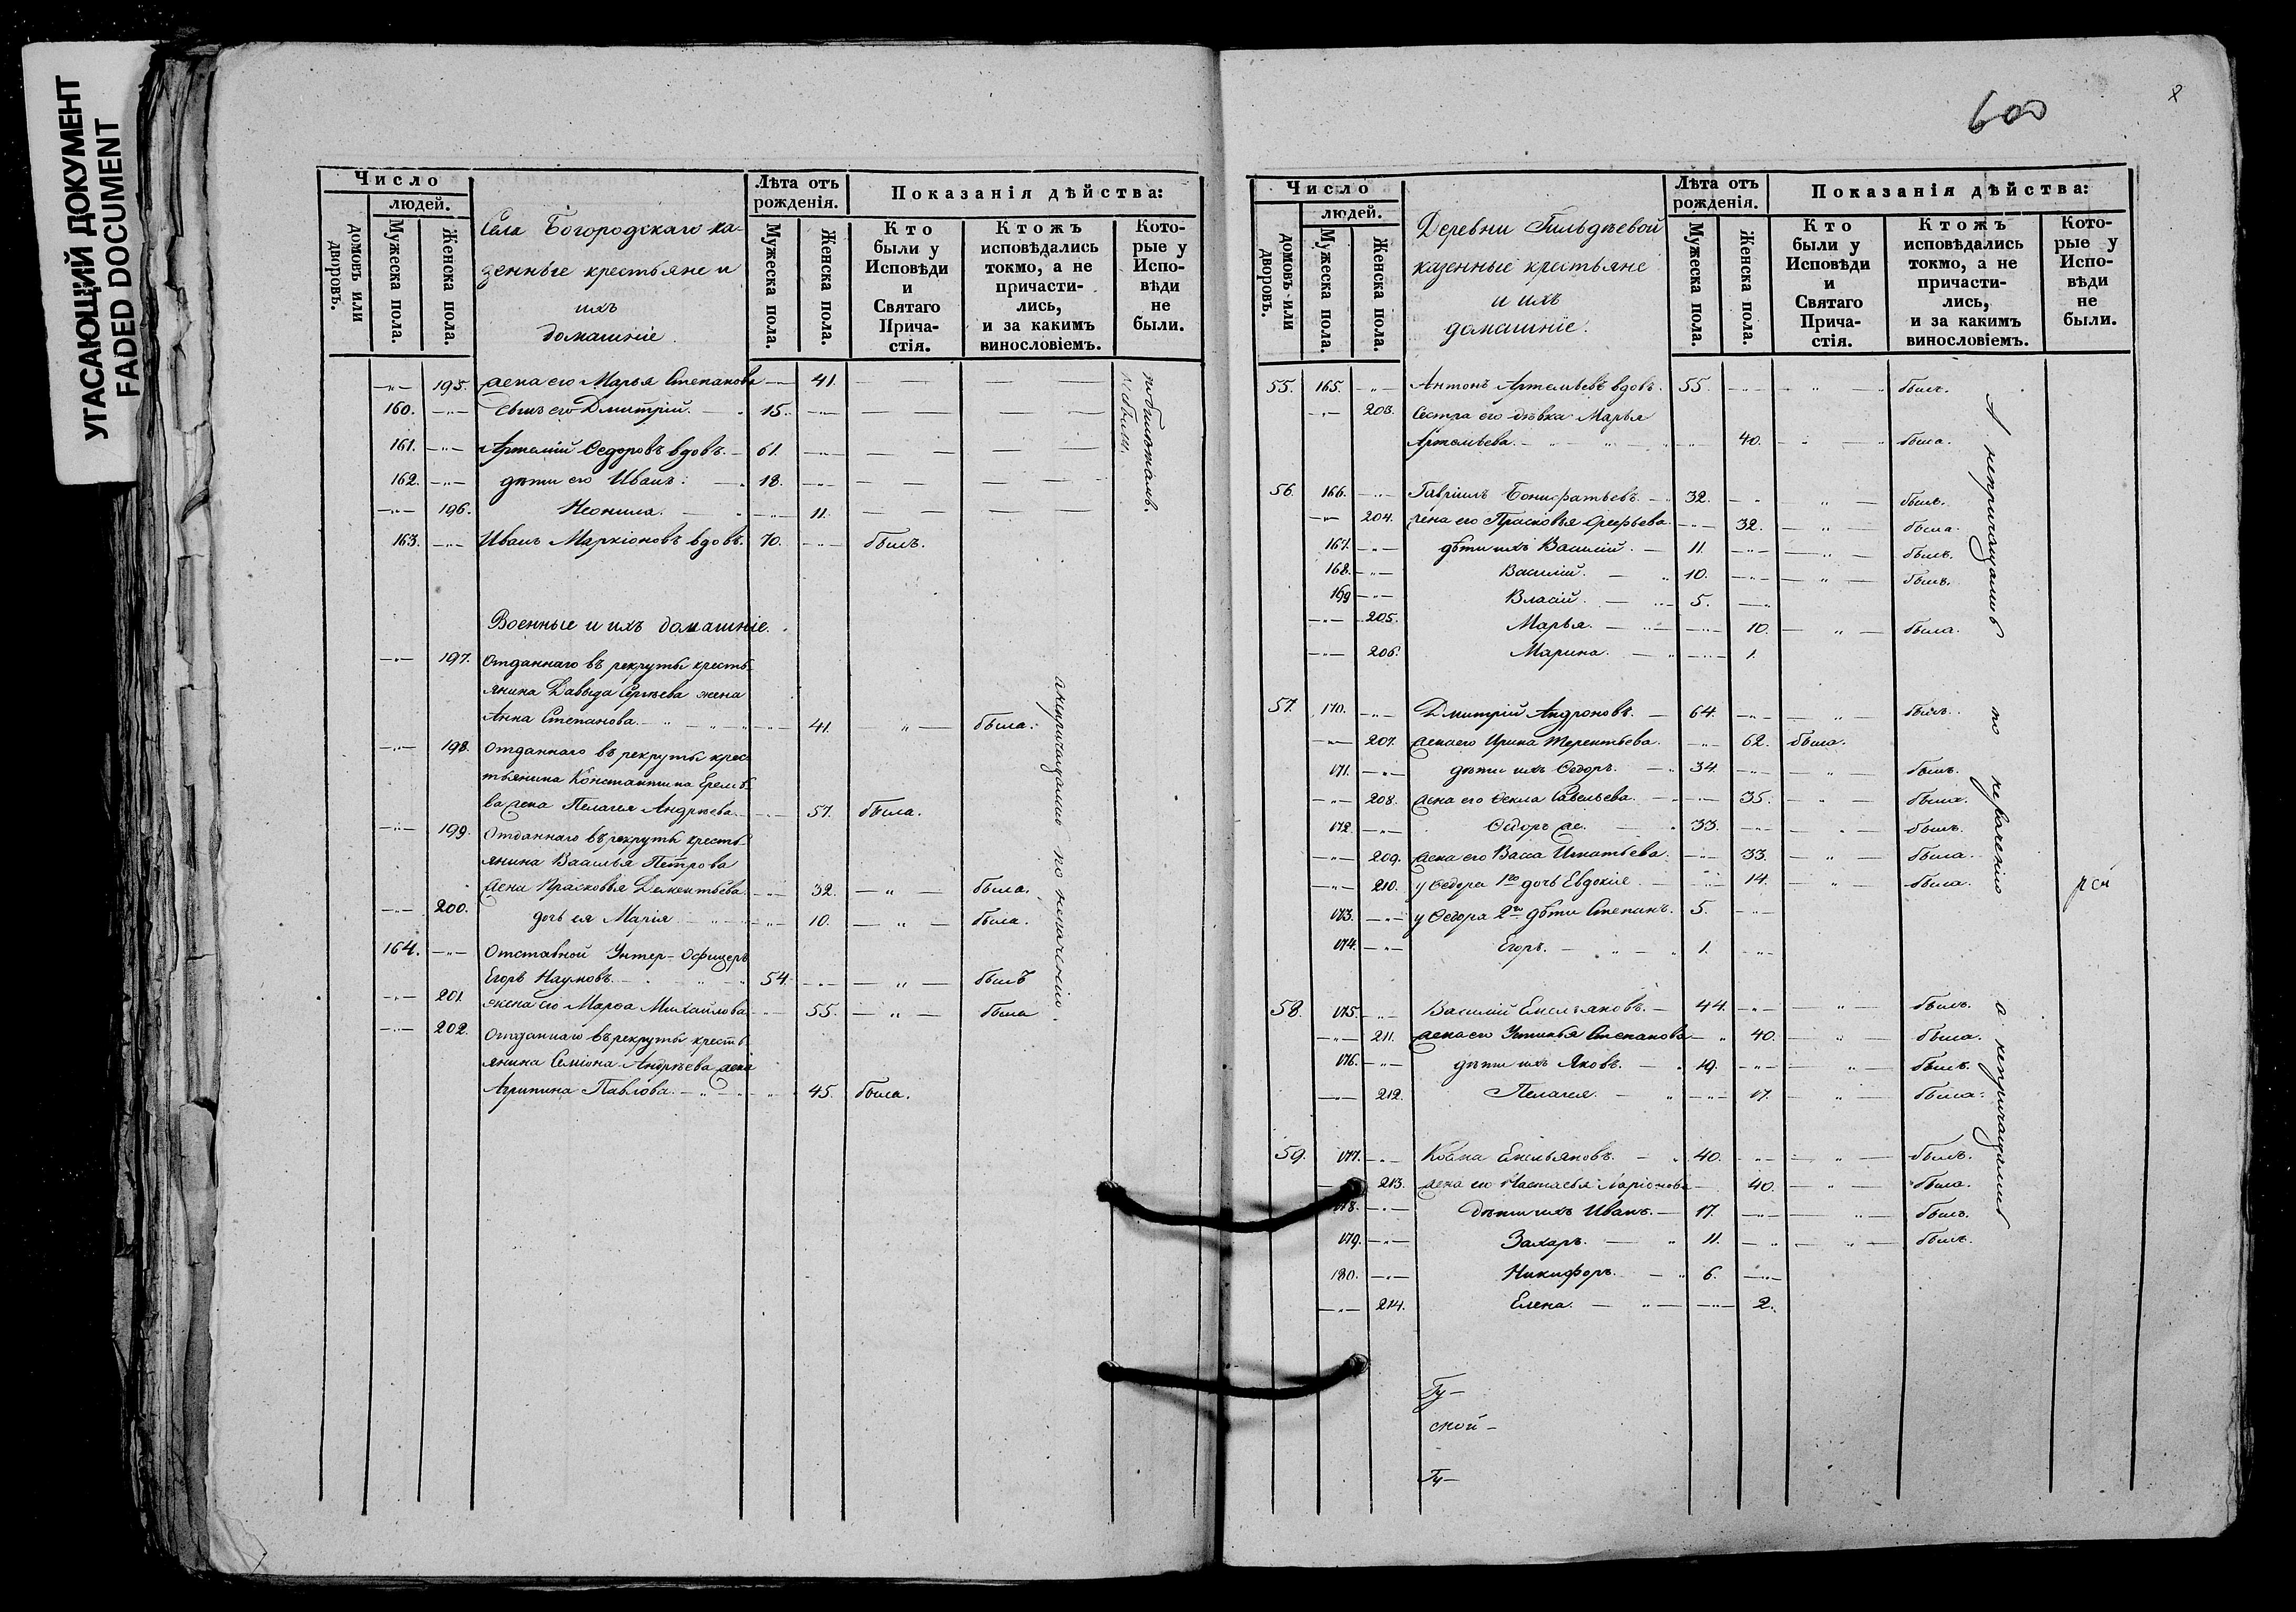 УГАСАЮЩИЙ ДОКУМЕНТ
FADED DOCUMENT
Число
людей.
домовъ или дворовъ.
Мужеска пола.
Женска пола.
Села Богородскаго ка-
зенные крестьяне и
ихъ
домашніе.
Лѣта отъ рожденія.
Мужеска пола.
Женска пола.
Показанія дѣйства:
Кто были у Исповѣди и Святаго Прича-стія.
Ктожъ исповѣдались токмо, а не причасти-лись, и за какимъ винословіемъ.
Кото-рые у Испо-вѣди не были.
—"— 195. жена его Марья Степанова —"— 41. — — — —
160. —"— сынъ его Дмитрій. — 15. —"— — — — —
161. —"— Артемій Ѳедоровъ вдовъ. — 61. —"— — — — —
162. —"— дѣти его Иванъ. — 18. —"— — — — —
—"— 196. Неонила. — —"— 11. — — — —
163. —"— Иванъ Маркіоновъ вдовъ. 70. —"— былъ.
не были.
Военные и ихъ домашніе.
—"— 197. Отданнаго въ рекруты кресть-
янина Давыда Сергѣева жена
Анна Степанова. — " — —"— 41. " — была.
—"— 198. Отданнаго въ рекруты крес-
тьянина Константина Еремѣ-
ва жена Пелагея Андрѣева. —"— 57. была.
—"— 199. Отданнаго въ рекруты кресть-
янина Василья Петрова
жена Прасковья Дементьева. —"— 32. — " — была.
—"— 200. дочь ея Марія —"— 10. — " — была.
164. —"— Отставной Унтер-Офицеръ
Егоръ Наумовъ. — 54. —"— — " — былъ
—"— 201. жена его Марѳа Михайлова —"— 55. — " — была
—"— 202. Отданнаго въ рекруты кресть-
янина Семіона Андрѣева жена
Агрипина Павлова. — " — —"— 45. была.
а непричащались по
600
8
Число
людей.
домовъ или дворовъ.
Мужеска пола.
Женска пола.
Деревни Гильдѣевой
казенные крестьяне
и ихъ
домашніе.
Лѣта отъ рожденія.
Мужеска пола.
Женска пола.
Показанія дѣйства:
Кто были у Исповѣди и Святаго Прича-стія.
Ктожъ исповѣдались токмо, а не причасти-лись, и за какимъ винословіемъ.
Кото-рые у Испо-вѣди не были.
55. 165. —"— Антонъ Артемьевъ вдовъ. 55. —"— — " — былъ.
—"— 203. Сестра его дѣвка Марья
Артемьева. — " — —"— 40. — " — была.
56. 166. —"— Гавріилъ Бонифатьевъ. — 32. —"— " — былъ.
—"— 204. жена его Прасковья Орефьева. —"— 32. — " — была.
167. —"— дѣти ихъ Василій. — 11. —"— — " — былъ.
168. —"— Василій. — 10. —"— — " — былъ.
169 —"— Власій. — 5. —"—
—"— 205. Марья. — —"— 10. — " — была.
—"— 206. Марина. — —"— 1.
57. 170. —"— Дмитрій Андроновъ. — 64. —"— — " — былъ.
—"— 207. жена его Ирина Терентьева. —"— 62. была.
171. —"— дѣти ихъ Ѳедоръ. — 34. —"— — " — былъ.
—"— 208. жена его Ѳекла Савельева. —"— 35. — " — была.
172. —"— Ѳедоръ же. — 33. —"— — " — былъ.
—"— 209. жена его Васса Игнатьева. —"— 33. — " — была.
—"— 210. у Ѳедора 1го дочь Евдокія —"— 14. — " — была.
173. —"— у Ѳедора 2го дѣти Степанъ. 5. —"—
174. —"— Егоръ. — " — 1. —"—
58. 175. —"— Василій Емельяновъ. — 44. —"— — " — былъ.
—"— 211. жена его Устинья Степанова —"— 40. — " — была.
176. —"— дѣти ихъ Яковъ. — 19. —"— — " — былъ.
—"— 212. Пелагея. — —"— 17. — " — была.
59. 177. —"— Козма Емельяновъ. — 40. —"— — " — былъ.
—"— 213. жена его Настасья Ларіонова — 40. — " — была.
178. —"— дѣти ихъ Иванъ. — 17. —"— — " — былъ.
179. —"— Захаръ. — 11. —"— — " — былъ.
180. —"— Никифоръ. — 6. —"—
—"— 214. Елена. — " — —"— 2.
А непричащались по нераченію
а непричащались
Гу-
ской-
Гу-